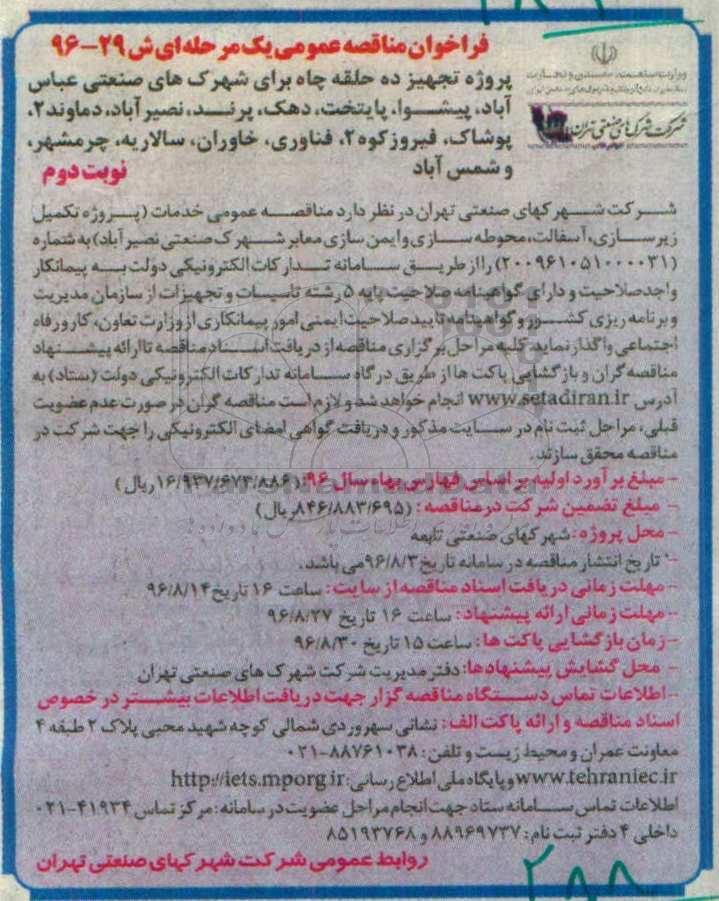 فراخوان مناقصه عمومی یک مرحله‌ای ش ۲۹-۹۶
وزارت صنعت، معدن و تجارت
شرکت شهرک‌های صنعتی تهران
پروژه تجهیز ده حلقه چاه برای شهرک های صنعتی عباس
آباد، پیشوا، پایتخت، دهک، پرند، نصیر آباد، دماوند۲،
پوشاک، فیروزکوه۲، فناوری، خاوران، سالاریه، چرمشهر،
و شمس آباد
نوبت دوم
شرکت شهرکهای صنعتی تهران در نظر دارد مناقصه عمومی خدمات (پروژه تکمیل
زیرسازی، آسفالت، محوطه سازی و ایمن سازی معابر شهرک صنعتی نصیر آباد) به شماره
(۲۰۰۹۶۱۰۵۱۰۰۰۰۳۱) را از طریق سامانه تدارکات الکترونیکی دولت به پیمانکار
واجد صلاحیت و دارای گواهینامه صلاحیت پایه ۵ رشته تاسیسات و تجهیزات از سازمان مدیریت
و برنامه ریزی کشور و گواهینامه تایید صلاحیت ایمنی امور پیمانکاری از وزارت تعاون، کار و رفاه
اجتماعی واگذار نماید. کلیه مراحل برگزاری مناقصه از دریافت اسناد مناقصه تا ارائه پیشنهاد
مناقصه گران و بازگشایی پاکت ها از طریق درگاه سامانه تدارکات الکترونیکی دولت (ستاد) به
آدرس www.setadiran.ir انجام خواهد شد و لازم است مناقصه گران در صورت عدم عضویت
قبلی، مراحل ثبت نام در سایت مذکور و دریافت گواهی امضای الکترونیکی را جهت شرکت در
مناقصه محقق سازند.
- مبلغ برآورد اولیه بر اساس فهارس بهاء سال ۹۶: (۱۶/۹۳۷/۶۷۳/۸۸۶ ریال)
- مبلغ تضمین شرکت در مناقصه: (۸۴۶/۸۸۳/۶۹۵ ریال)
- محل پروژه: شهرکهای صنعتی تابعه
- تاریخ انتشار مناقصه در سامانه تاریخ ۹۶/۸/۳ می باشد.
- مهلت زمانی دریافت اسناد مناقصه از سایت: ساعت ۱۶ تاریخ ۹۶/۸/۱۴
- مهلت زمانی ارائه پیشنهاد: ساعت ۱۶ تاریخ ۹۶/۸/۲۷
- زمان بازگشایی پاکت ها: ساعت ۱۵ تاریخ ۹۶/۸/۳۰
- محل گشایش پیشنهادها: دفتر مدیریت شرکت شهرک های صنعتی تهران
- اطلاعات تماس دستگاه مناقصه گزار جهت دریافت اطلاعات بیشتر در خصوص
اسناد مناقصه و ارائه پاکت الف: نشانی سهروردی شمالی کوچه شهید محبی پلاک ۲ طبقه ۴
معاونت عمران و محیط زیست و تلفن: ۸۸۷۶۱۰۳۸-۰۲۱
www.tehraniec.ir و پایگاه ملی اطلاع رسانی: http://iets.mporg.ir
اطلاعات تماس سامانه ستاد جهت انجام مراحل عضویت در سامانه: مرکز تماس ۴۱۹۳۴-۰۲۱
داخلی ۴ دفتر ثبت نام: ۸۸۹۶۹۷۳۷ و ۸۵۱۹۳۷۶۸
روابط عمومی شرکت شهرکهای صنعتی تهران
۲۸۸